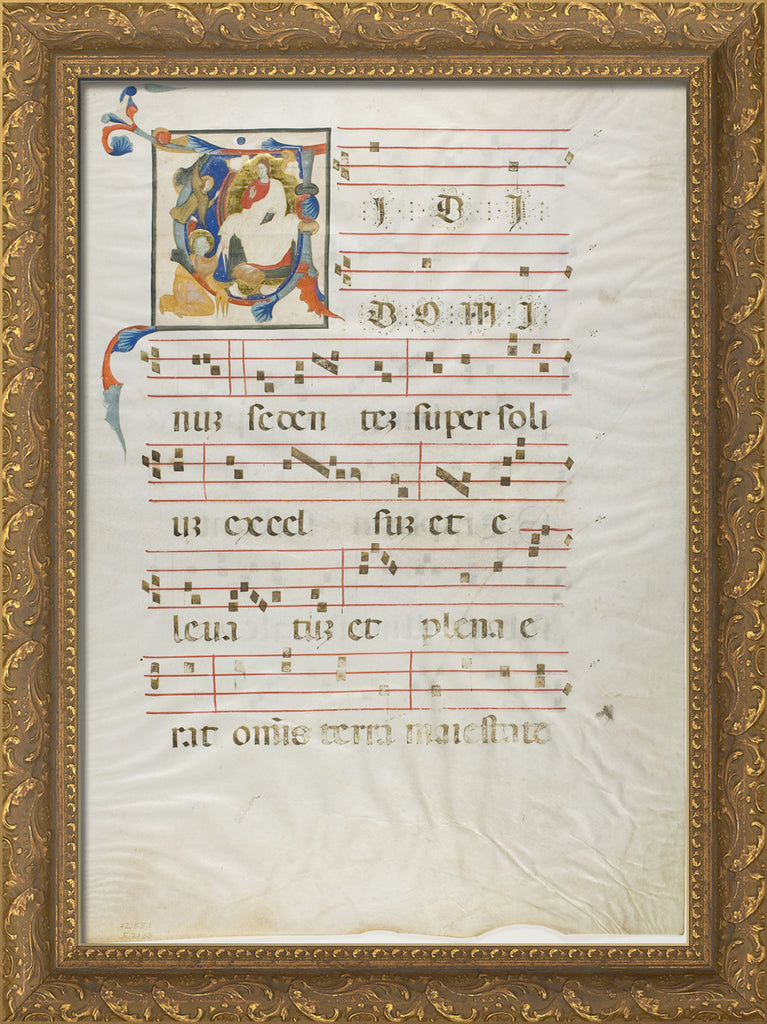 VIDI
DOMI
nuz seden tez super soli
uz excel suz et e
leua tuz et plena e
rat omīs terra maiestate